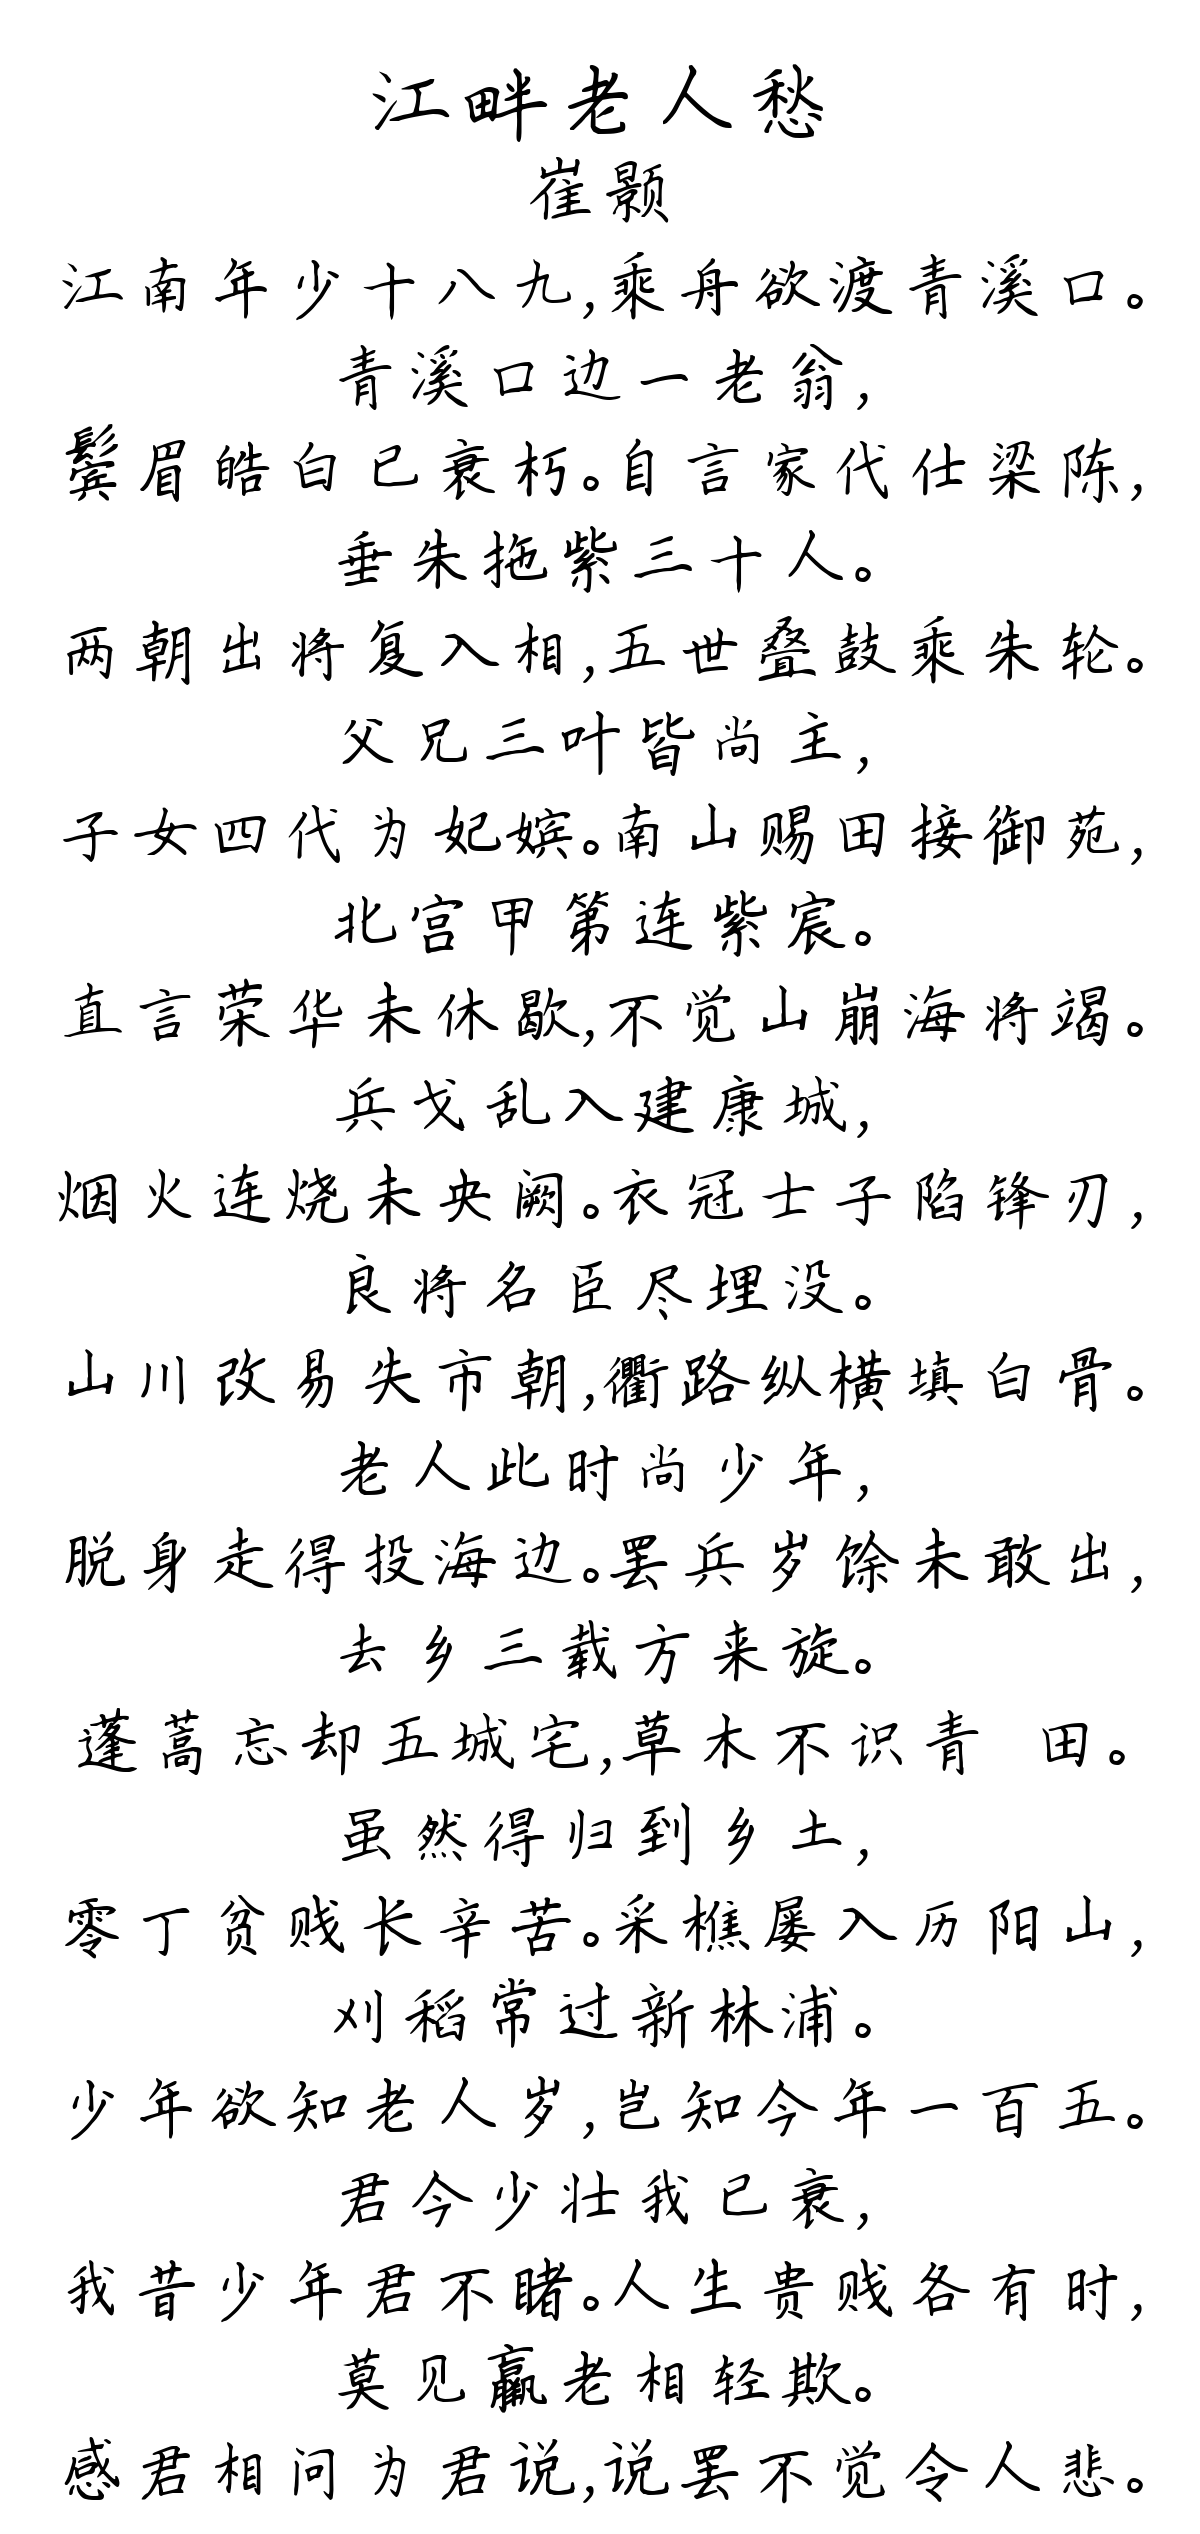 江畔老人愁
崔颢
江南年少十八九,乘舟欲渡青溪口。
青溪口边一老翁,
鬓眉皓白已衰朽。自言家代仕梁陈,
垂朱拖紫三十人。
两朝出将复入相,五世叠鼓乘朱轮。
父兄三叶皆尚主,
子女四代为妃嫔。南山赐田接御苑,
北宫甲第连紫宸。
直言荣华未休歇,不觉山崩海将竭。
兵戈乱入建康城,
烟火连烧未央阙。衣冠士子陷锋刃,
良将名臣尽埋没。
山川改易失市朝,衢路纵横填白骨。
老人此时尚少年,
脱身走得投海边。罢兵岁馀未敢出,
去乡三载方来旋。
蓬蒿忘却五城宅,草木不识青 田。
虽然得归到乡土,
零丁贫贱长辛苦。采樵屡入历阳山,
刈稻常过新林浦。
少年欲知老人岁,岂知今年一百五。
君今少壮我已衰,
我昔少年君不睹。人生贵贱各有时,
莫见羸老相轻欺。
感君相问为君说,说罢不觉令人悲。